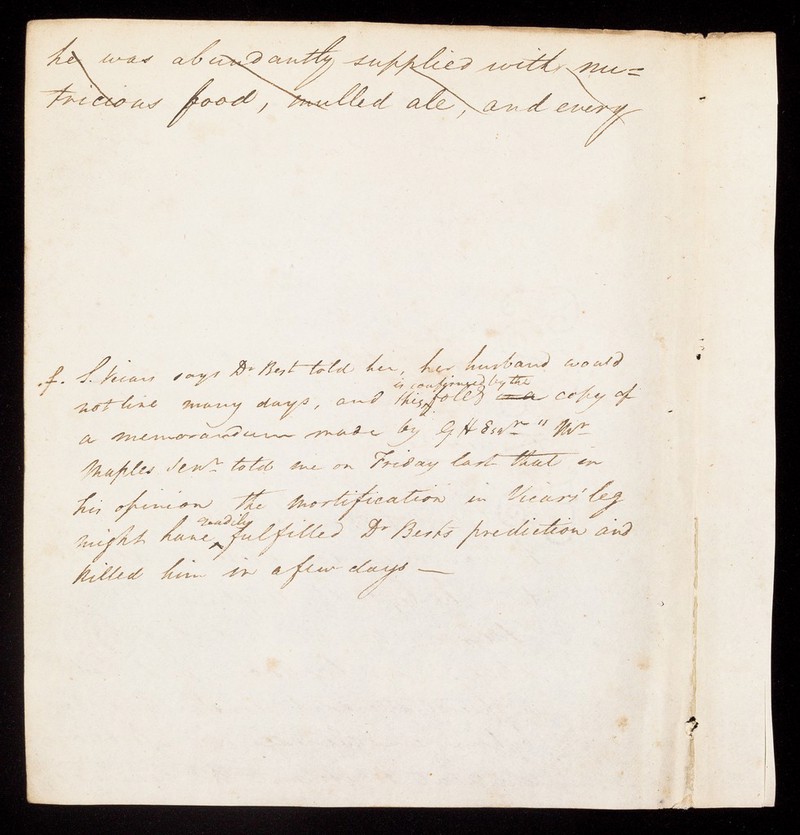 he was abundantly supplied with nu=
tricious food, mulled ale, and every
f. S. Vicars says Dr Best told her, her husband would
not live many days, and this is confirmed by the copy of
a memorandum made by G H Esqr " Mr
Maples Senr told me on Friday last that in
his opinion the mortification in Vicars' leg
might have readily fulfilled Dr Bests prediction and
killed him in a few days —